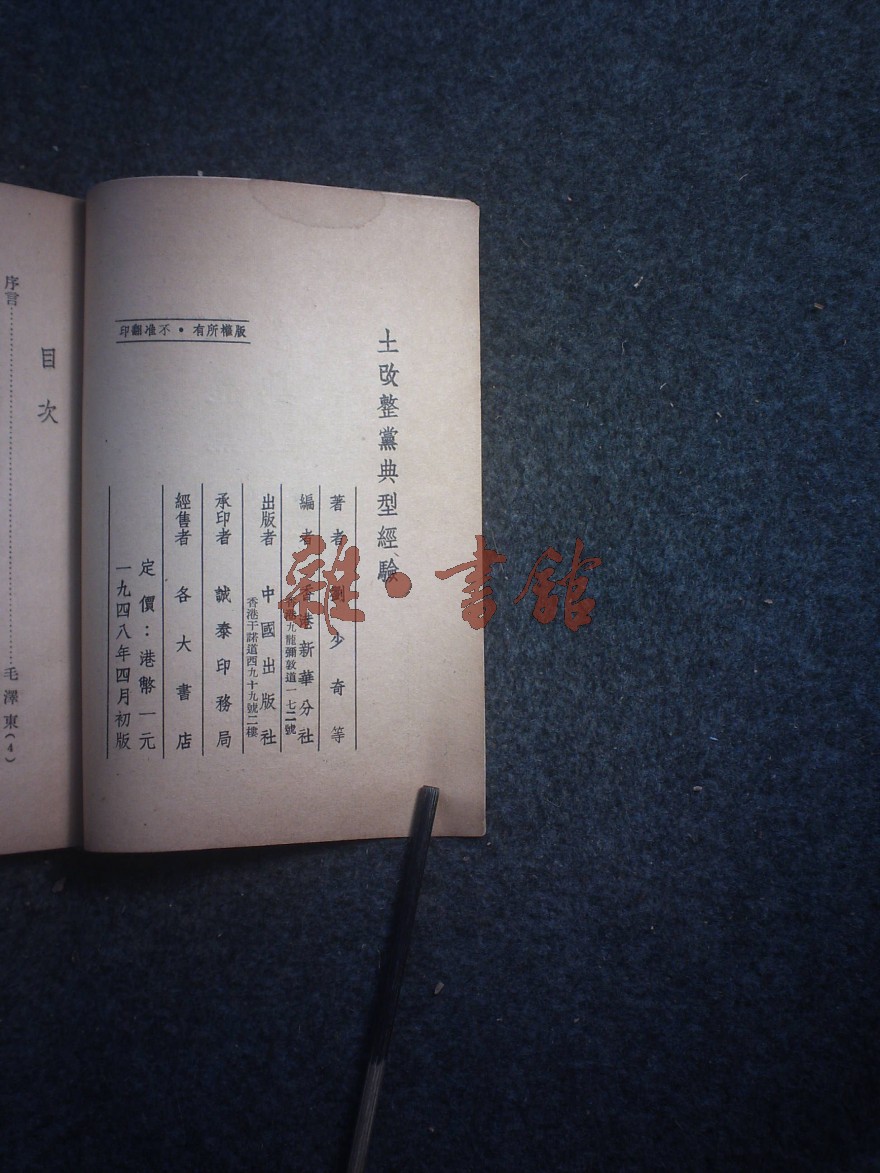 土改整黨典型經驗
著者 劉少奇等
編者 香港新華分社
香港九龍彌敦道一七二號
出版者 中國出版社
香港干諾道西九十九號二樓
承印者 誠泰印務局
經售者 各大書店
定價：港幣一元
一九四八年四月初版
版權所有・不准翻印
目次
序言……毛澤東(4)
雜·書館